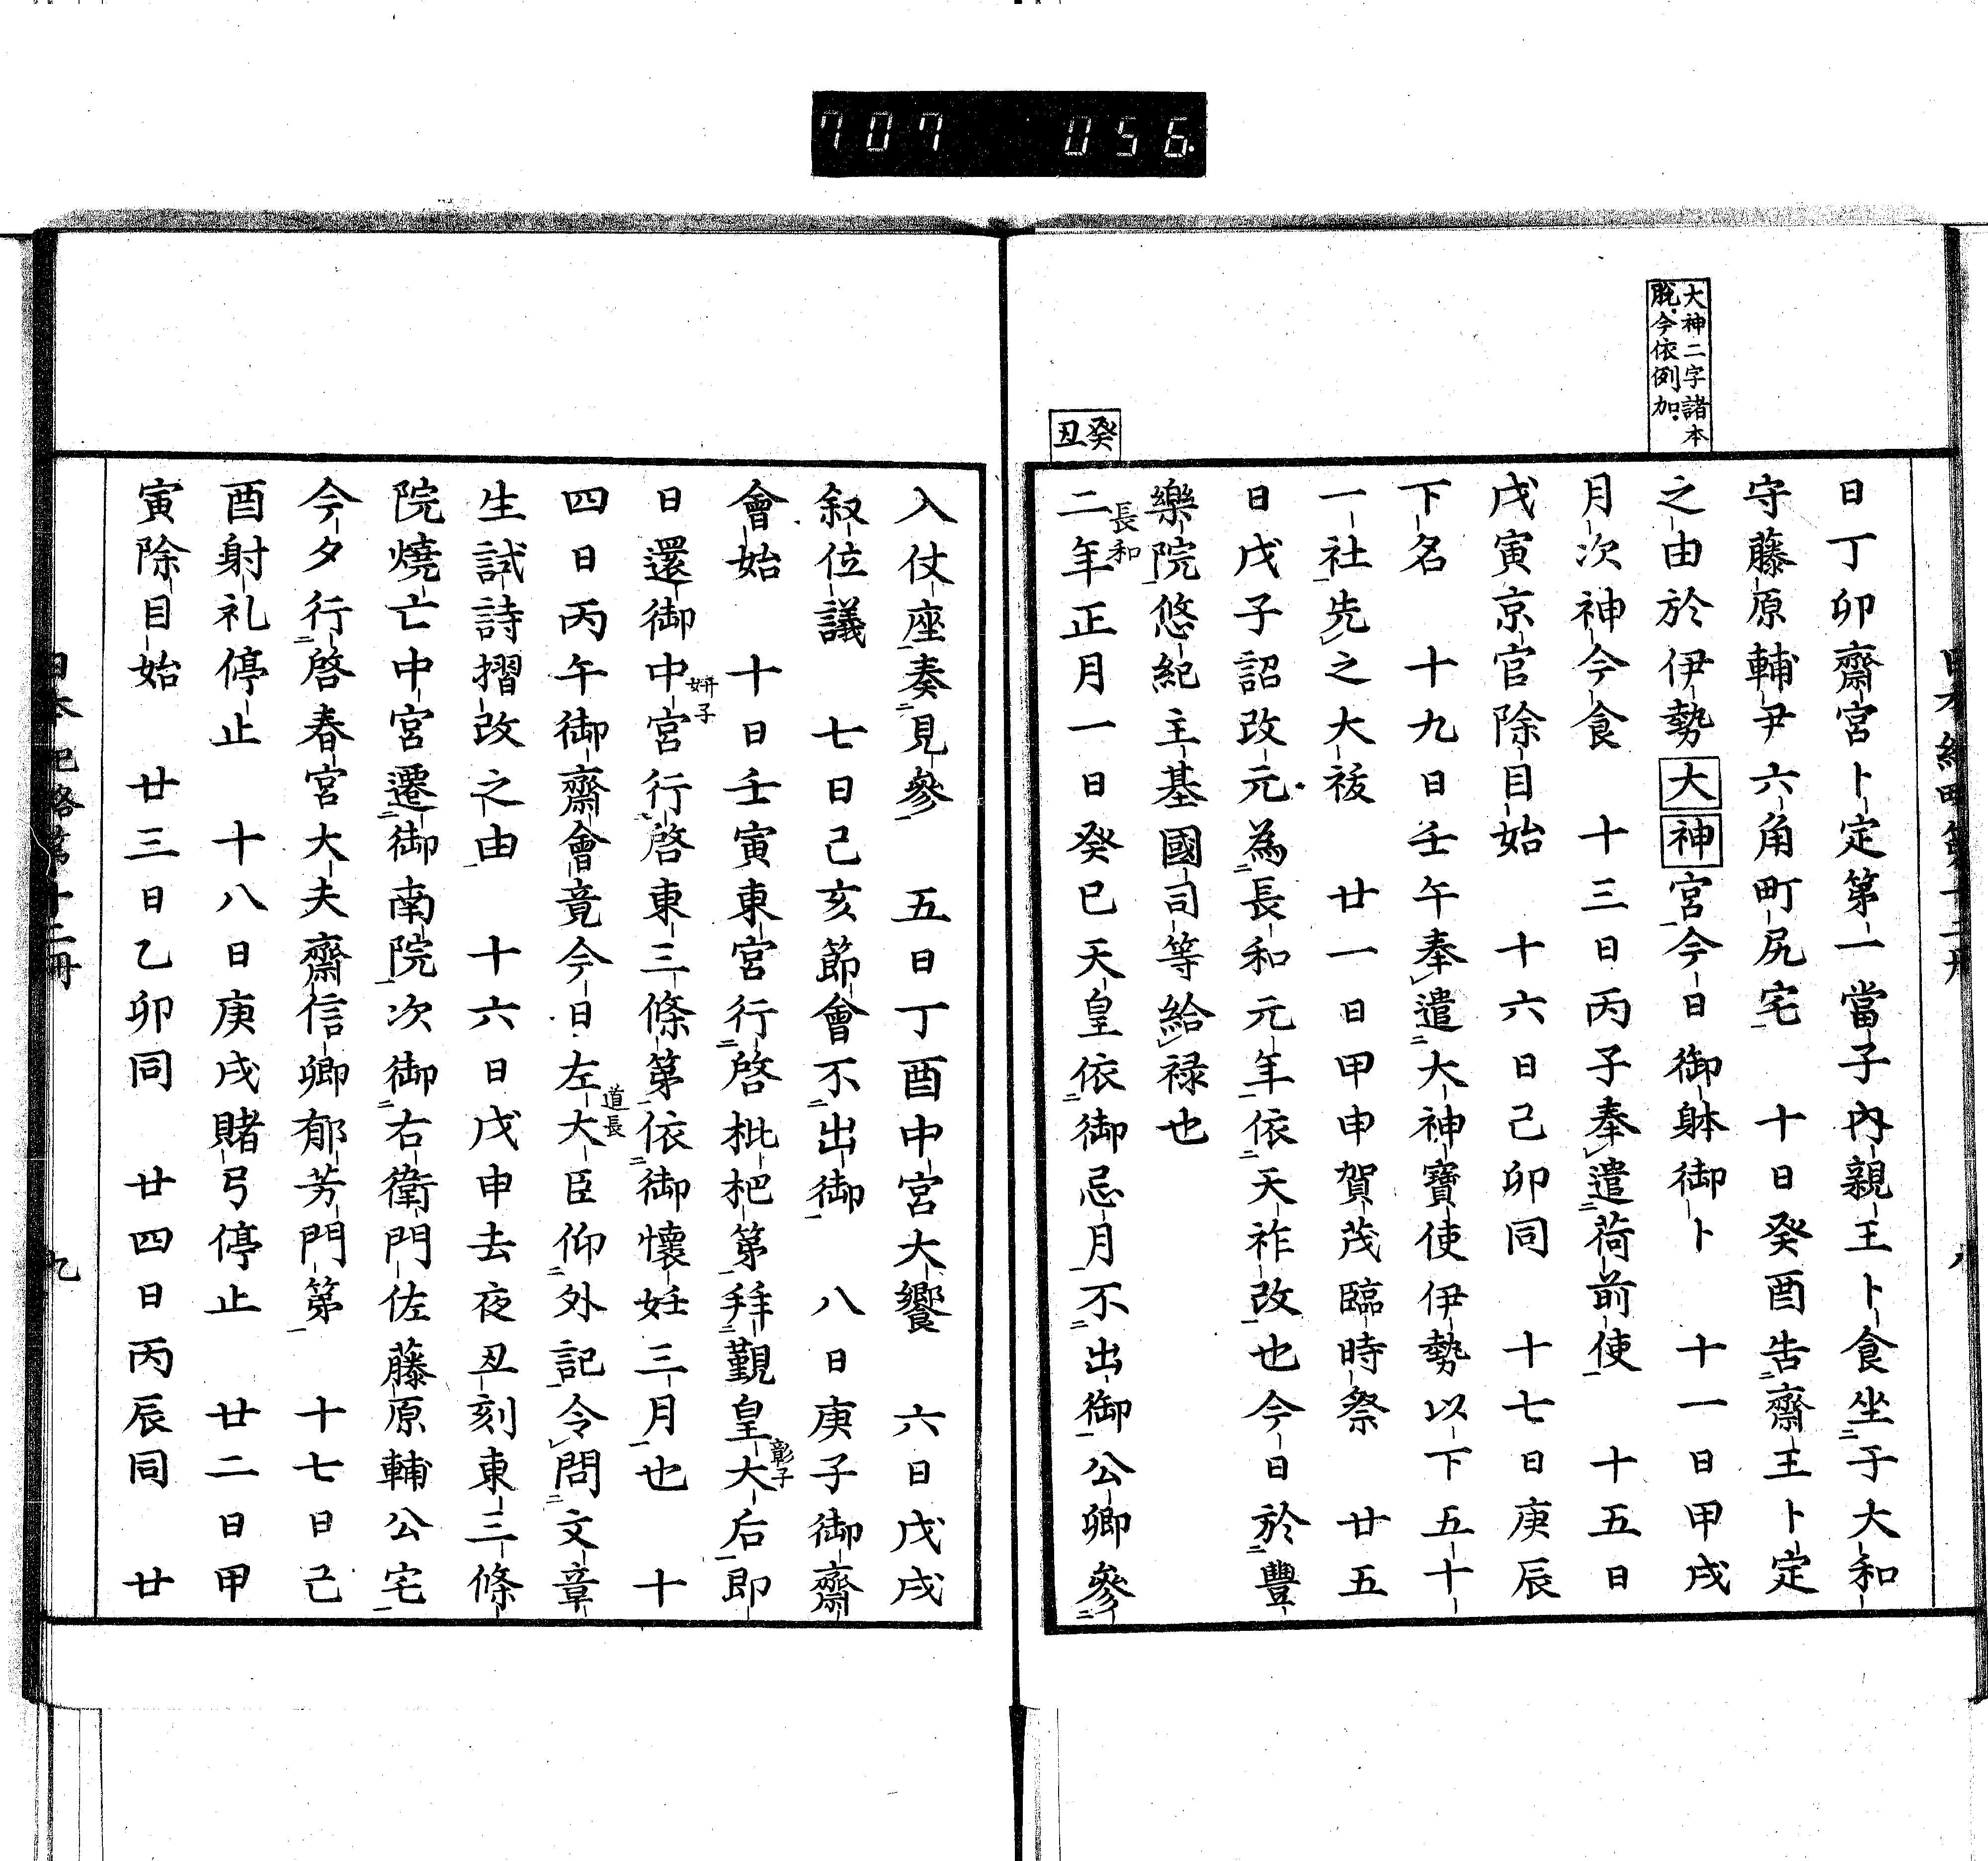 707 056
大神二字諸本
脱今依例加
癸丑
日丁卯齋宮卜定第一當子內親王卜食坐于大和
守藤原輔尹六角町尻宅 十日癸酉告齋王卜定
之由於伊勢大神宮今日御躰御卜 十一日甲戌
月次神今食 十三日丙子奉遣荷前使 十五日
戊寅京官除目始 十六日己卯同 十七日庚辰
下名 十九日壬午奉遣大神寶使伊勢以下五十
一社先之大祓 廿一日甲申賀茂臨時祭 廿五
日戊子詔改元為長和元年依天祚改也今日於豐
樂院悠紀主基國司等給禄也
長和
二年正月一日癸巳天皇依御忌月不出御公卿參
入仗座奏見參 五日丁酉中宮大饗 六日戊戌
叙位議 七日己亥節會不出御 八日庚子御齋
會始 十日壬寅東宮行啓枇杷第拜覲皇大后即
彰子
日還御中宮行啓東三條第依御懷妊三月也 十
妍子
四日丙午御齋會竟今日左大臣仰外記令問文章
道長
生試詩摺改之由 十六日戊申去夜丑刻東三條
院燒亡中宮遷御南院次御右衛門佐藤原輔公宅
今夕行啓春宮大夫齋信卿郁芳門第 十七日己
酉射礼停止 十八日庚戌賭弓停止 廿二日甲
寅除目始 廿三日乙卯同 廿四日丙辰同 廿
日本紀略第十二冊 九